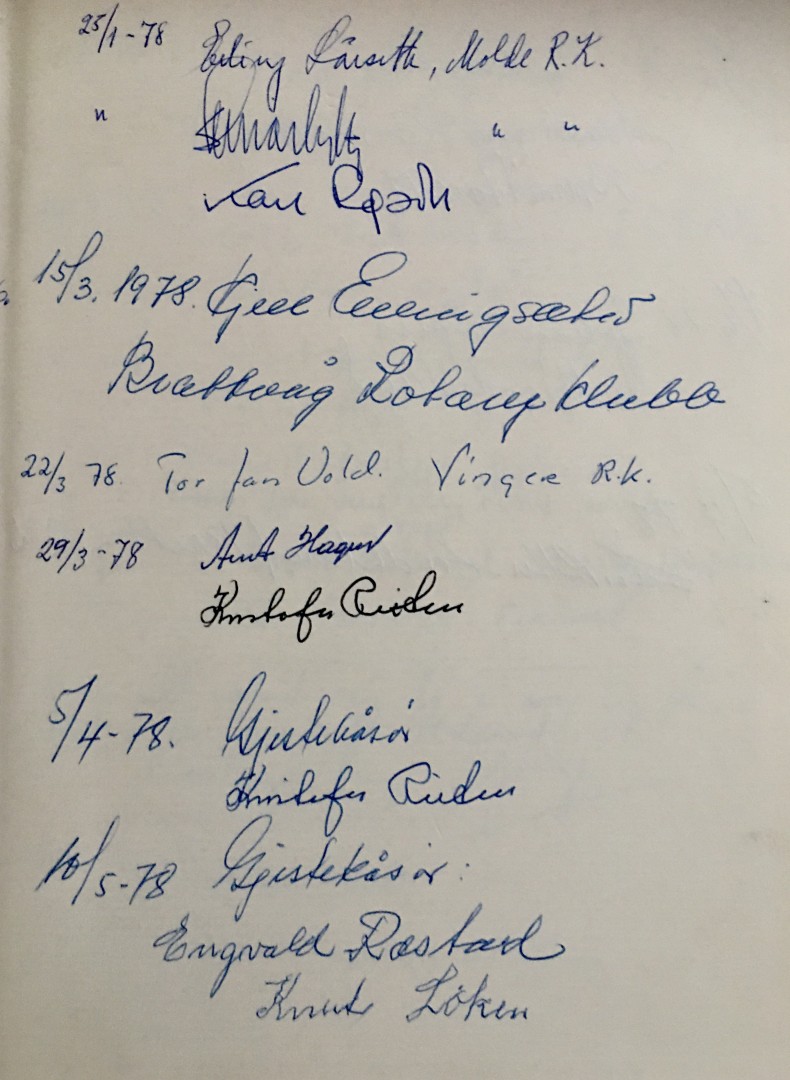 25/1-78 Erling Lårseth, Molde R.K.
" " "
Karl
15/3. 1978. Kjell Emingsæter
Brattvåg Rotary Klubb
22/3 78. Tor Jan Vold. Vinger R.K.
29/3-78 Arnt Hagen
Kristofer Rieber
5/4-78. Gjestekåsør
Kristofer Rieber
10/5-78 Gjestekåsør:
Engvald Røstad
Knut Löken